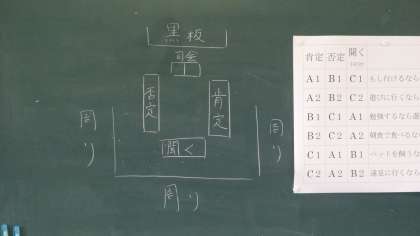 黒板
司会
否定
肯定
聞く
周り
周り
周り
肯定 否定 聞く
A1 B1 C1 もし行けるなら
A2 B2 C2 遊びに行くなら
B1 C1 A1 勉強するなら
B2 C2 A2 朝食で食べるな
C1 A1 B1 ペットを飼うな
C2 A2 B2 遠足に行くなら